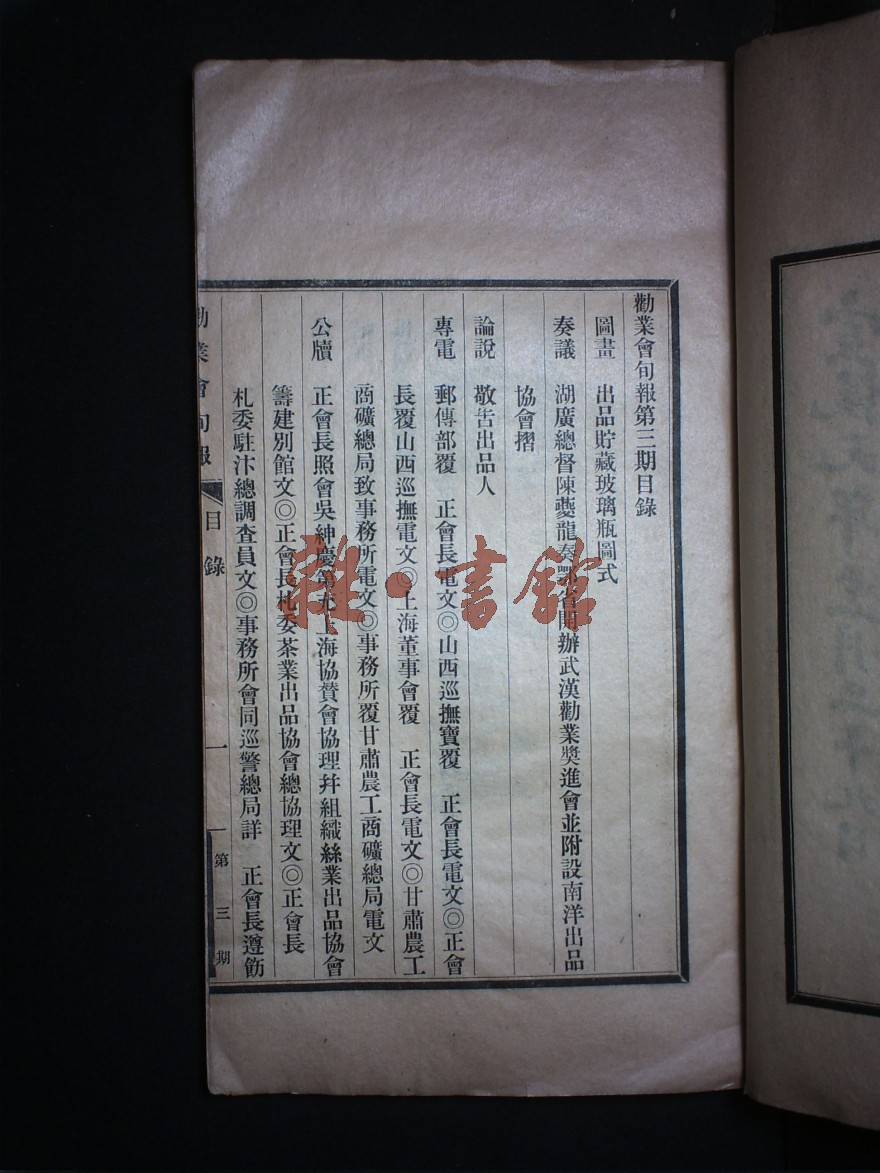 勸業會旬報第三期目錄
圖畫 出品貯藏玻璃瓶圖式
奏議 湖廣總督陳夔龍奏鄂省開辦武漢勸業獎進會並附設南洋出品
協會摺
論說 敬告出品人
專電 郵傳部覆 正會長電文◎山西巡撫寶覆 正會長電文◎正會
長覆山西巡撫電文◎上海董事會覆 正會長電文◎甘肅農工
商礦總局致事務所電文◎事務所覆甘肅農工商礦總局電文
公牘 正會長照會吳紳慶第充上海協贊會協理幷組織絲業出品協會
籌建別館文◎正會長札委茶業出品協會總協理文◎正會長
札委駐汴總調查員文◎事務所會同巡警總局詳 正會長遵飭
勸業會旬報 目錄 一 第三期
雜·書館